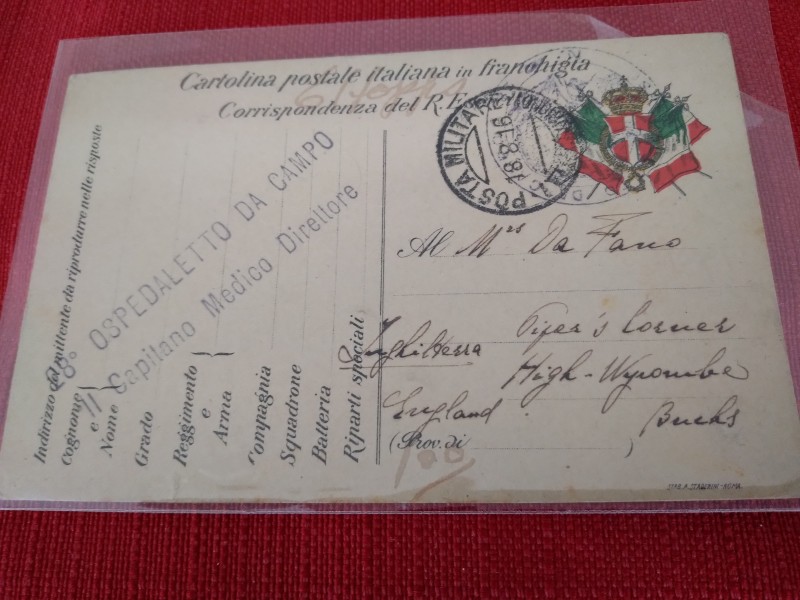 Cartolina postale italiana in franchigia
Corrispondenza del R. E
POSTA MILITARE
18.8.16
Indirizzo del mittente da riprodurre nelle risposte
Cognome
e
Nome
Grado
Reggimento
e
Arma
Compagnia
Squadrone
Batteria
Riparti speciali
8° OSPEDALETTO DA CAMPO
Il Capitano Medico Direttore
Al Mrs Da Fano
Piper's Corner
Inghilterra
High-Wycombe
England
Bucks
(Prov. di